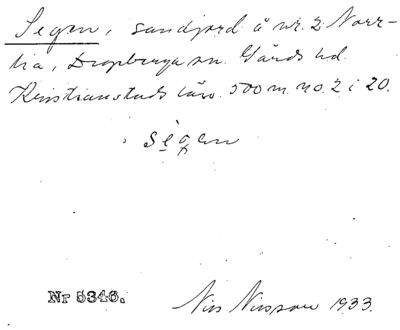 Segen, sandjord å nr. 2 Norr-
lia, Degeberga sn. Gärds hd.
Kristianstads län. 500 m. no. 2 i 20.
segen
Nr 5346.
Nils Nilsson 1933.